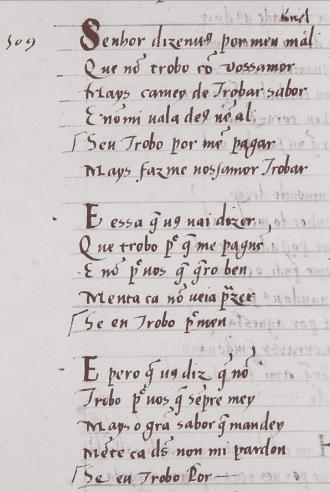 509
Senhor dizenuꝯ por meu mal
Que nō trobo cō vossamor
Mays camey de Trobar sabor
E nō mi vala deꝯ nē al
Seu Trobo por me pagar
Mays faz me vossamor Trobar
E essa q̄ uꝯ uai dizer
Que trobo pᵉ q̄ me pague
E nō pᵉ vos q̄ q̄ro ben
Menta ca nō veia pᵃzer
Se eu Trobo pᵉ men
E pero q̄ uꝯ diz q̄ nō
Trobo pᵉ vos q̄ sēpre mey
Mays o grā sabor q̄ mandey
Mēte ca ds̄ non mi pardon
Se eu Trobo Por